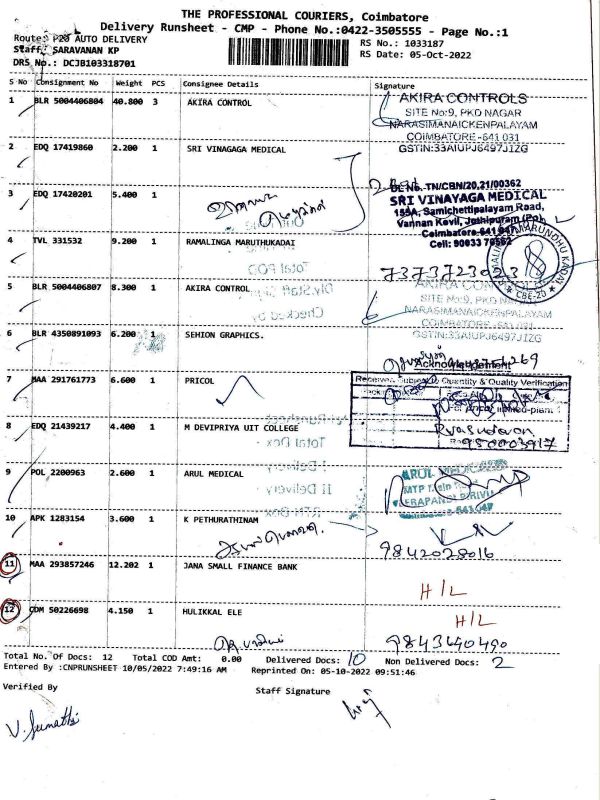 THE PROFESSIONAL COURIERS, Coimbatore
Delivery Runsheet - CMP - Phone No.:0422-3505555 - Page No.:1
Route: P20 AUTO DELIVERY
RS No.: 1033187
Staff: SARAVANAN KP
RS Date: 05-Oct-2022
DRS No.: DCJB103318701
S No Consignment No Weight PCS Consignee Details Signature
1 BLR 5004406804 40.800 3 AKIRA CONTROL
AKIRA CONTROLS
SITE No:9, PKD NAGAR
NARASIMANAICKENPALAYAM
COIMBATORE-641 031
GSTIN:33AIUPJ6497J1ZG
2 EDQ 17419860 2.200 1 SRI VINAGAGA MEDICAL
3 EDQ 17420201 5.400 1
DL No. TN/CBN/20,21/00362
SRI VINAYAGA MEDICAL
155A, Samichettipalayam Road,
Vannan Kovil, Jothipuram (Po),
Coimbatore-641 047.
4 TVL 331532 9.200 1 RAMALINGA MARUTHUKADAI
7373723023
5 BLR 5004406807 8.300 1 AKIRA CONTROL
AKIRA CONTROLS
SITE No:9, PKD NAGAR
NARASIMANAICKENPALAYAM
COIMBATORE-641 031
GSTIN:33AIUPJ6497J1ZG
6 BLR 4350891093 6.200 1 SEHION GRAPHICS.
Acknowledgement
7 MAA 291761773 6.600 1 PRICOL
Received Subject to Quantity & Quality Verification
8 EDQ 21439217 4.400 1 M DEVIPRIYA UIT COLLEGE
9 POL 2200963 2.600 1 ARUL MEDICAL
ARUL MEDICALS
10 APK 1283154 3.600 1 K PETHURATHINAM
9842028016
11 MAA 293857246 12.202 1 JANA SMALL FINANCE BANK
H/L
12 CDM 50226698 4.150 1 HULIKKAL ELE
H/L
9843640490
Total No. Of Docs: 12 Total COD Amt: 0.00 Delivered Docs: 10 Non Delivered Docs: 2
Entered By :CNPRUNSHEET 10/05/2022 7:49:16 AM Reprinted On: 05-10-2022 09:51:46
Verified By Staff Signature
V. Sumathi